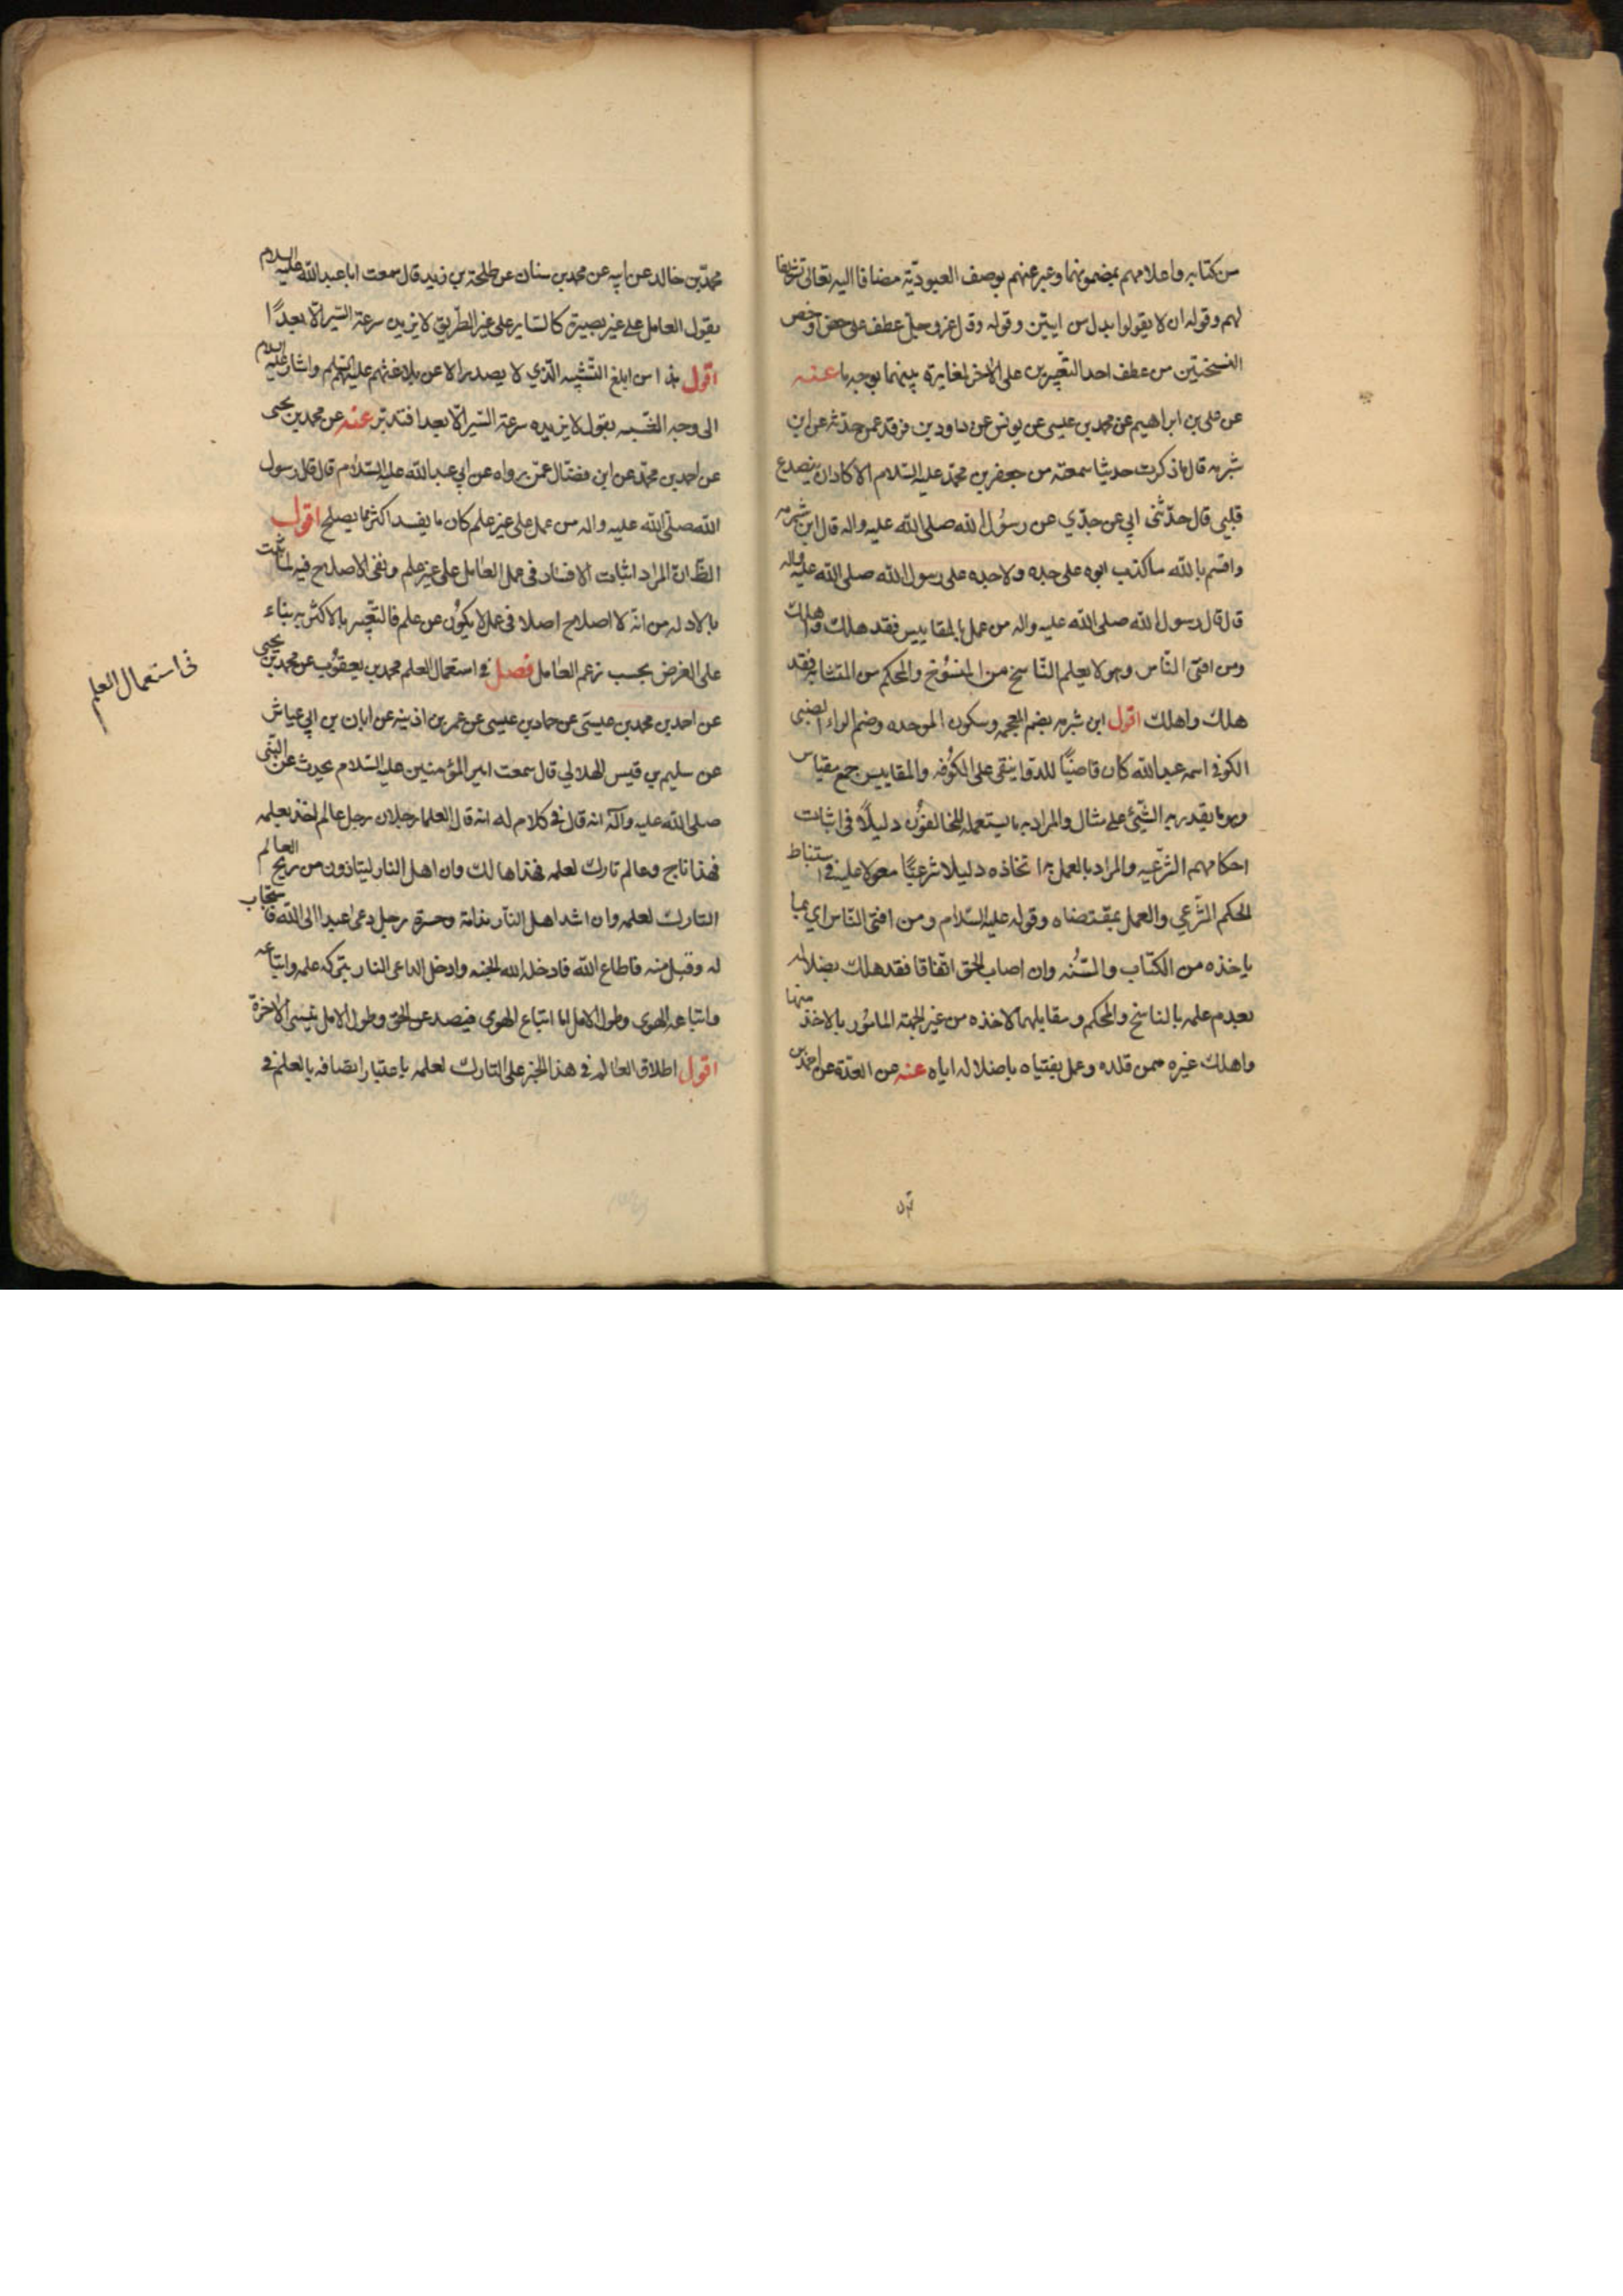 من كتابه واعلامهم بمضمونهما وعبر عنهم بوصف العبوديّة مضافا اليه تعالى تشريفا
لهم وقوله ان لا يقولوا بدل من ايتين وقوله وقال عز وجل عطف على حض او خص
النسختين من عطف احد التعبيرين على الاخر لمغايرة بينهما بوجه ما عنه
عن على بن ابراهيم عن محمد بن عيسى عن يونس عن داود بن فرقد عمن حدثه عن ابن
شبرمه قال ما ذكرت حديثا سمعته من جعفر بن محمّد عليه السّلام الا كاد ان يتصدع
قلبي قال حدّثنى ابي عن جدّي عن رسول الله صلى الله عليه واله قال ابن شبرمه
واقسم بالله ما كذب ابوه على جده ولا جده على رسول الله صلى الله عليه واله
قال قال رسول الله صلى الله عليه واله من عمل بالمقاييس فقد هلك واهلك
ومن افتى النّاس وهو لا يعلم النّاسخ من المنسُوخ والمحكم من المتشابه فقد
هلك واهلك اقول ابن شبرمه بضم المعجمه وسكون الموحده وضم الراء الضبى
الكوفى اسمه عبدالله كان قاضيًا للدوانيقى على الكُوفه والمقاييس جمع مقياس
وهو ما يقدر به الشّيئ على مثال والمراد به ما يستعمله المخالفُون دليلًا فى اثبات
احكامهم الشّرعيه والمراد بالعمل به اتخاذه دليلا شرعيًّا معولا عليه فى استنباط
الحكم الشّرعي والعمل بمقتضاه وقوله عليه السّلام ومن افتى النّاس اي بما
ياخذه من الكتاب والسُّنه وان اصاب الحق اتفاقا فقد هلك بضلاله
بعدم علمه بالناسخ والمحكم ومقابلهما لاخذه من غير الجهة المامُور بالاخذ منها
واهلك غيره ممن قلده وعمل بفتياه باضلاله اياه عنه عن العدّة عن احمد بن
محمّد بن خالد عن ابيه عن محمد بن سنان عن طلحة بن زيد قال سمعت ابا عبدالله عليه السلام
يقول العامل على غير بصيرة كالسّاير على غير الطّريق لا يزيده سرعة السّير الّا بعدًا
اقول هذا من ابلغ التّشبيه الّذي لا يصدر الا عن بلاغتهم عليهم السّلم واشار عليه السلام
الى وجه الشّبه بقول لا يزيده سرعة السّير الّا بعدا فتدبّر عنه عن محمد بن يحيى
عن احمد بن محمّد عن ابن فضّال عمّن رواه عن ابي عبدالله عليه السّلام قال قال رسول
الله صلّى الله عليه واله من عمل على غير علم كان ما يفسد اكثر مما يصلح اقول
الظّ ان المراد اثبات الافساد فى عمل العامل على غير علم ونفى الاصلاح فيه لما ثبت
بالادله من انه لا اصلاح اصلا فى عمل لا يكُون عن علم فالتعبير بالاكثريه بناء
على الفرض بحسب زعم العامل فصل فى استعمال العلم محمد بن يعقُوب عن محمد بن يحيى
عن احمد بن محمد بن عيسى عن حماد بن عيسى عن عمر بن اذينه عن ابان بن ابي عياش
عن سليم بن قيس الهلالي قال سمعت امير المؤمنين عليه السّلام يحدث عن النّبى
صلى الله عليه وآله انه قال فى كلام له انه قال العلما رجلان رجل عالم اخذ بعلمه
فهذا ناج وعالم تارك لعلمه فهذا هالك وان اهل النار ليتاذون من ريح العالم
التارك لعلمه وان اشد اهل النّار ندامة وحسرة رجل دعى عبدا الى الله فاستجاب
له وقبل منه فاطاع الله فادخله الله الجنه وادخل الداعى النار بتركه علمه واتباعه
واتباعه الهوى وطول الامل اما اتباع الهوى فيصد عن الحق وطول الامل ينسى الاخرة
اقول اطلاق العالم فى هذا الخبر على التارك لعلمه باعتبار اتصافه بالعلم فى
فى استعمال العلم